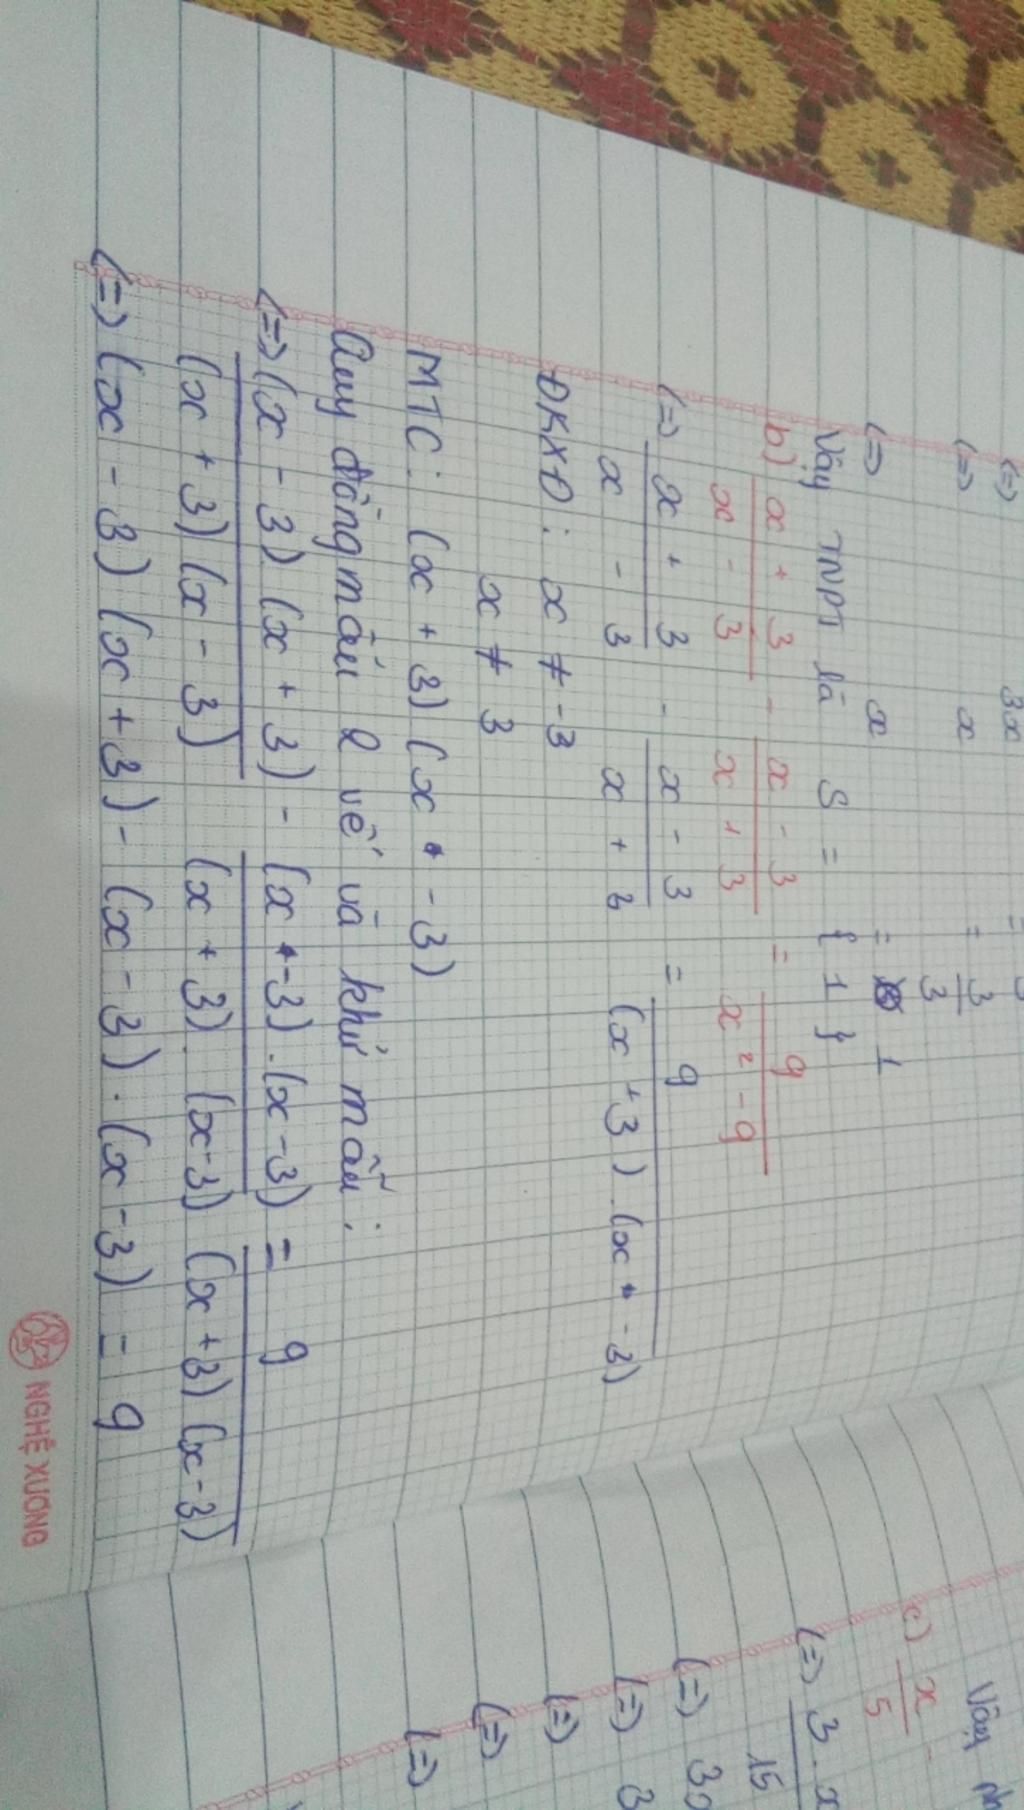 (=) 3x =
(=) x = 3/3
(=) x = 1
Vậy TNPT là S = { 1 }
b) x + 3 / x - 3 - x - 3 / x + 3 = 9 / x² - 9
(=) x + 3 / x - 3 - x - 3 / x + 3 = 9 / (x + 3) . (x - 3)
ĐKXĐ: x ≠ -3
x ≠ 3
MTC: (x + 3) (x - 3)
Quy đồng mẫu 2 vế và khử mẫu:
(=) (x - 3) (x + 3) - (x - 3) . (x - 3) = 9
(x + 3) (x - 3) (x + 3) . (x - 3) (x + 3) (x - 3)
(=) (x - 3) (x + 3) - (x - 3) . (x - 3) = 9
NGHỆ XUONG
Vậy
c) x / 5 -
(=) 3 . x
15
(=) 3
(=) 3
(=)
(=)
(=)